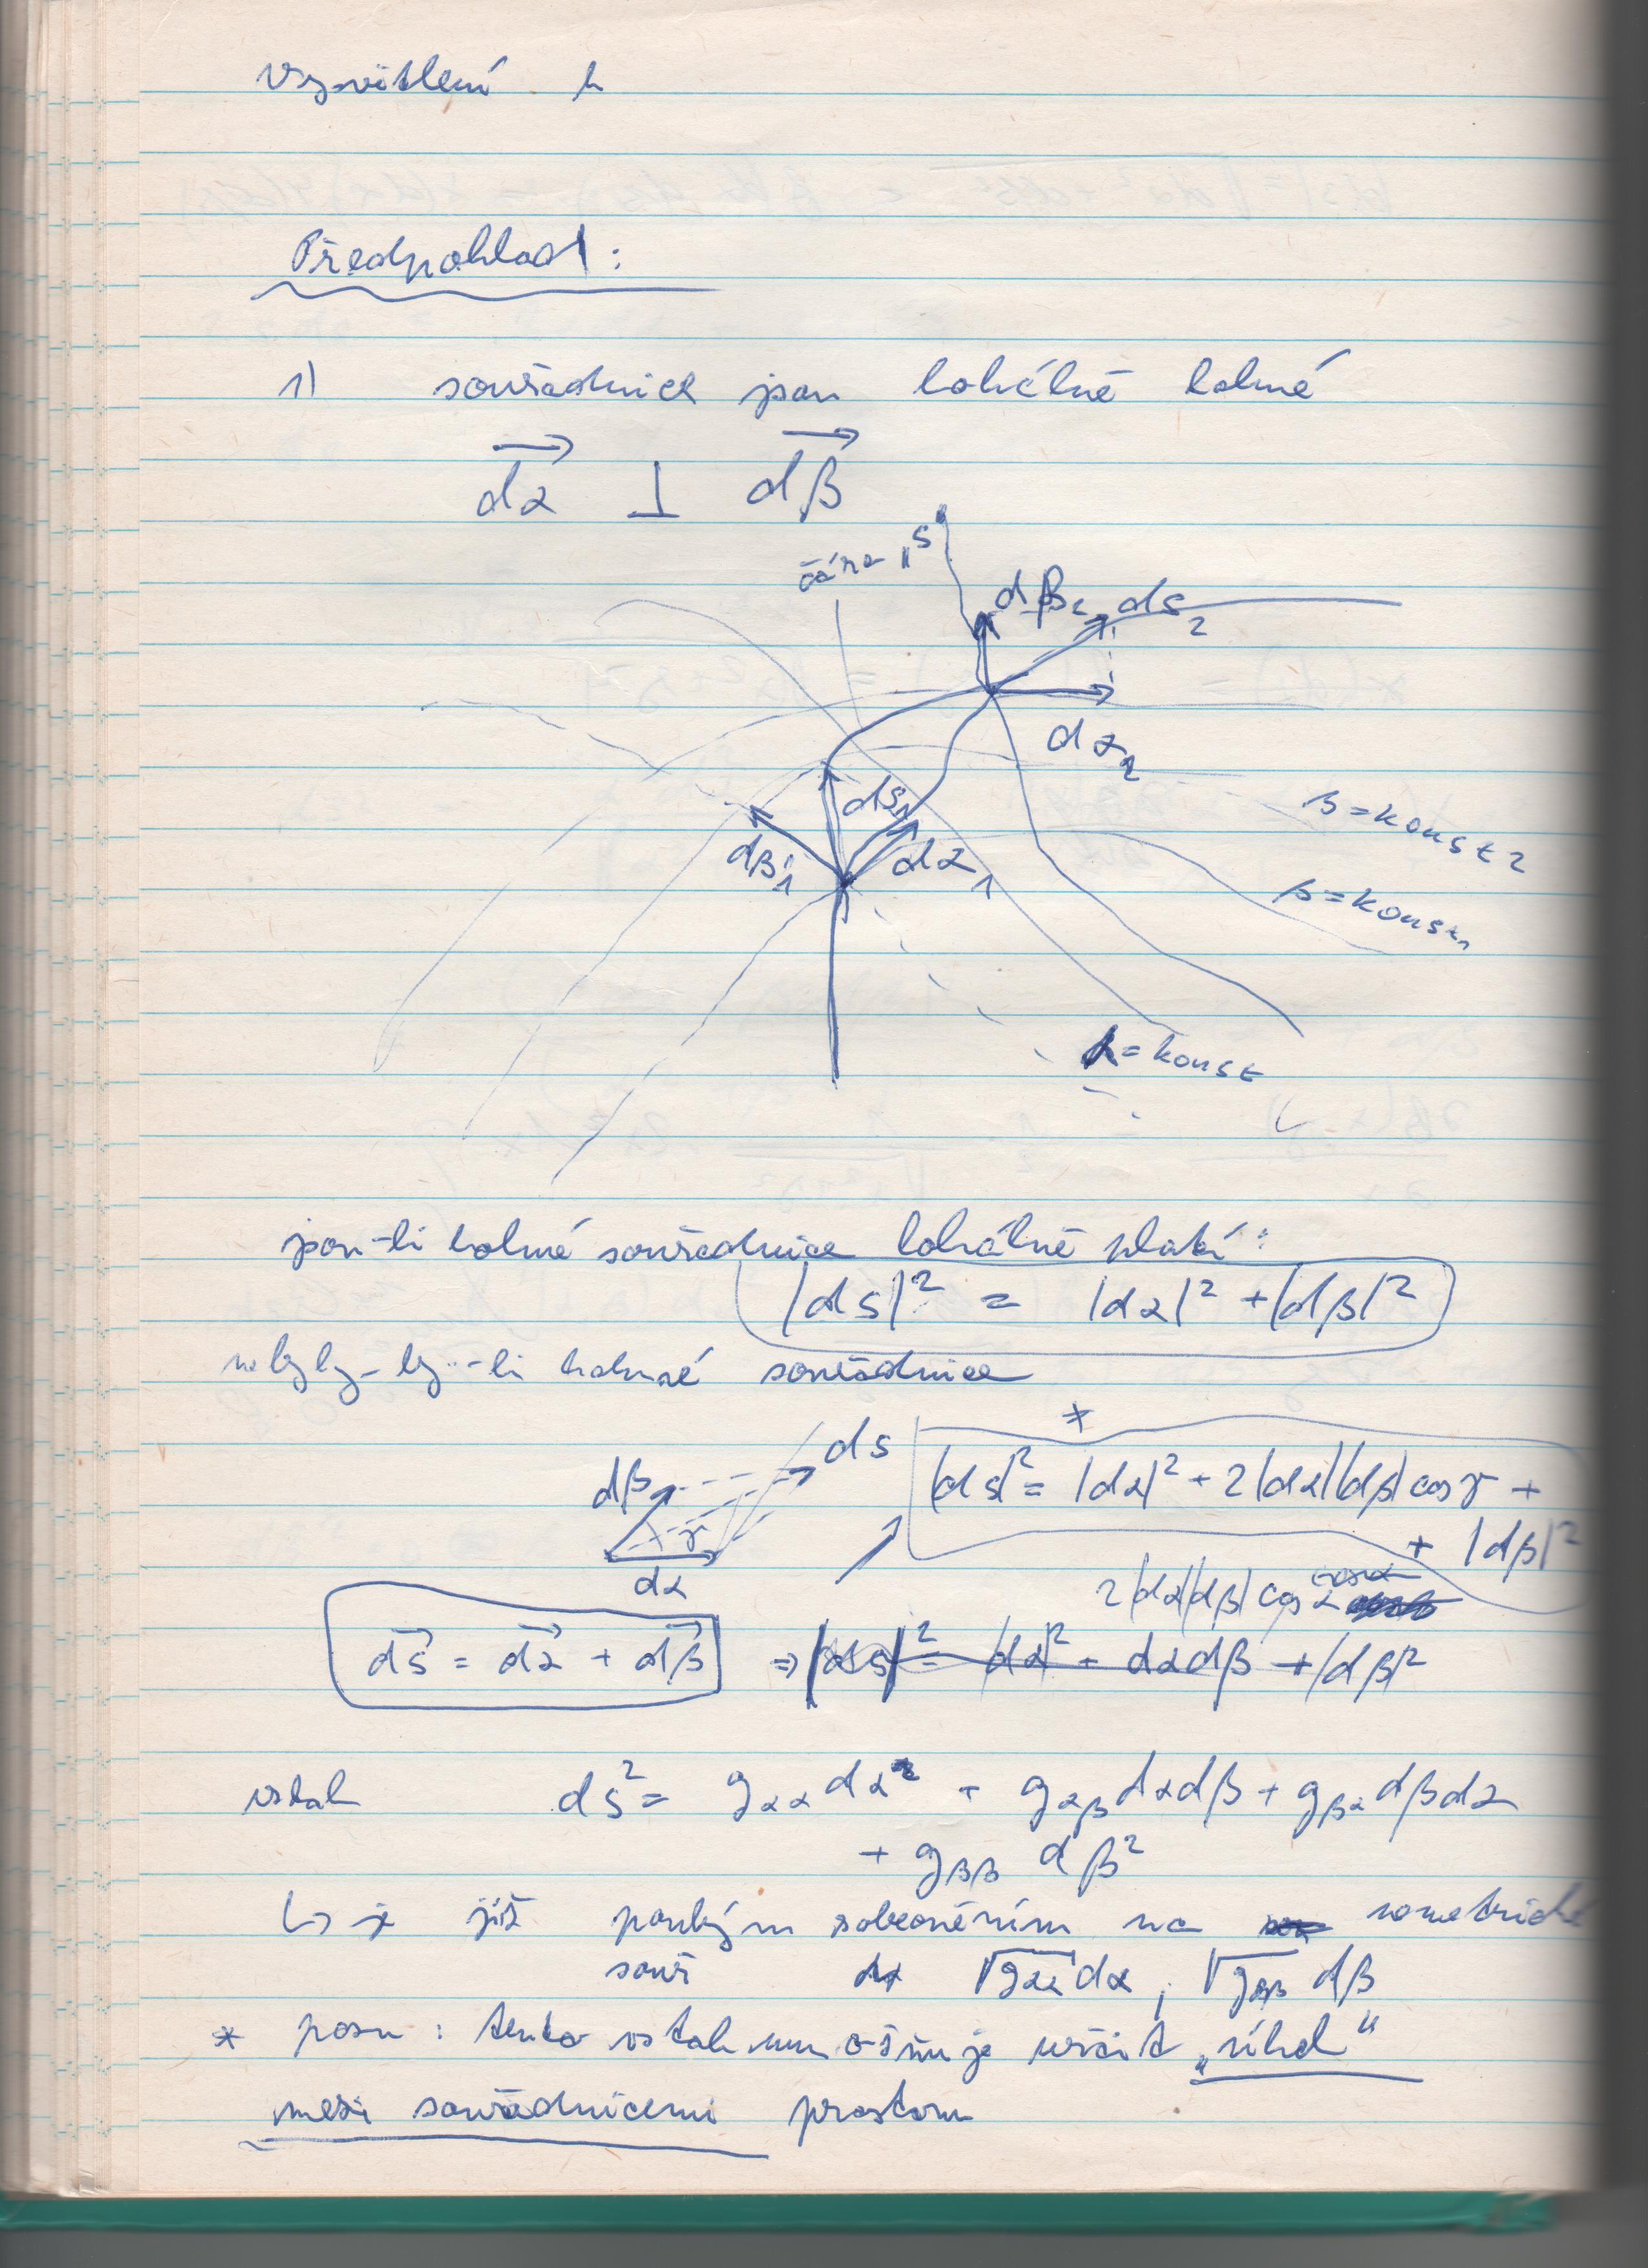 Vysvětlení k
Předpoklad :
1) souřadnice jsou lokálně kolmé
dα ⊥ dβ
čára „s“
dβ₂ ds₂
dα₂
ds₁
dβ₁ dα₁
β = konst₂
β = konst₁
α = konst
jsou-li kolmé souřadnice lokálně platí :
|ds|² = |dα|² + |dβ|²
nebyly-by-li kolmé souřadnice
*
dβ ds |ds|² = |dα|² + 2|dα||dβ| cos γ +
γ + |dβ|²
dα 2|dα||dβ| cos α
ds = dα + dβ ⇒ |ds|² = |dα|² + dαdβ + |dβ|²
vztah ds² = gαα dα² + gαβ dαdβ + gβα dβdα
+ gββ dβ²
↳ je již pouhým zobecněním na nometrické
souř √gαα dα , √gββ dβ
* pozn : tento vztah umožňuje určit „úhel“
mezi souřadnicemi prostoru